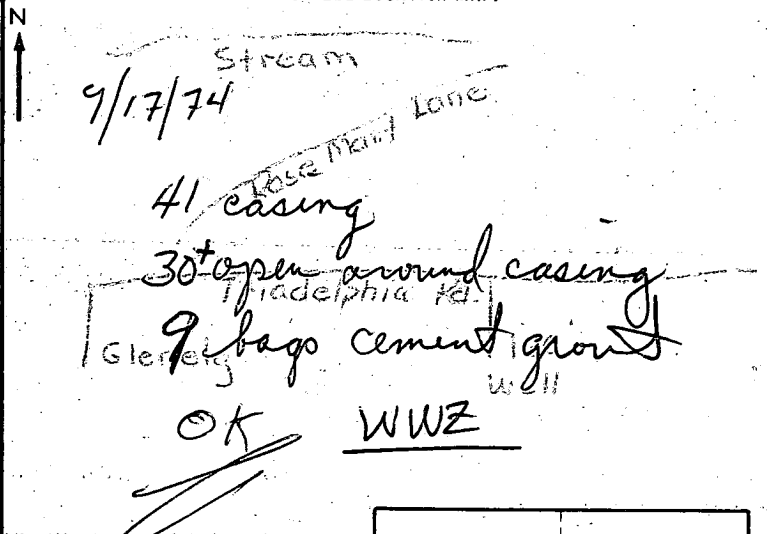 N
Stream
9/17/74
Rose Mary Lane
41 casing
30+ open around casing
Triadelphia Rd.
9 bags cement grout
Glenelg
Well
OK WWZ